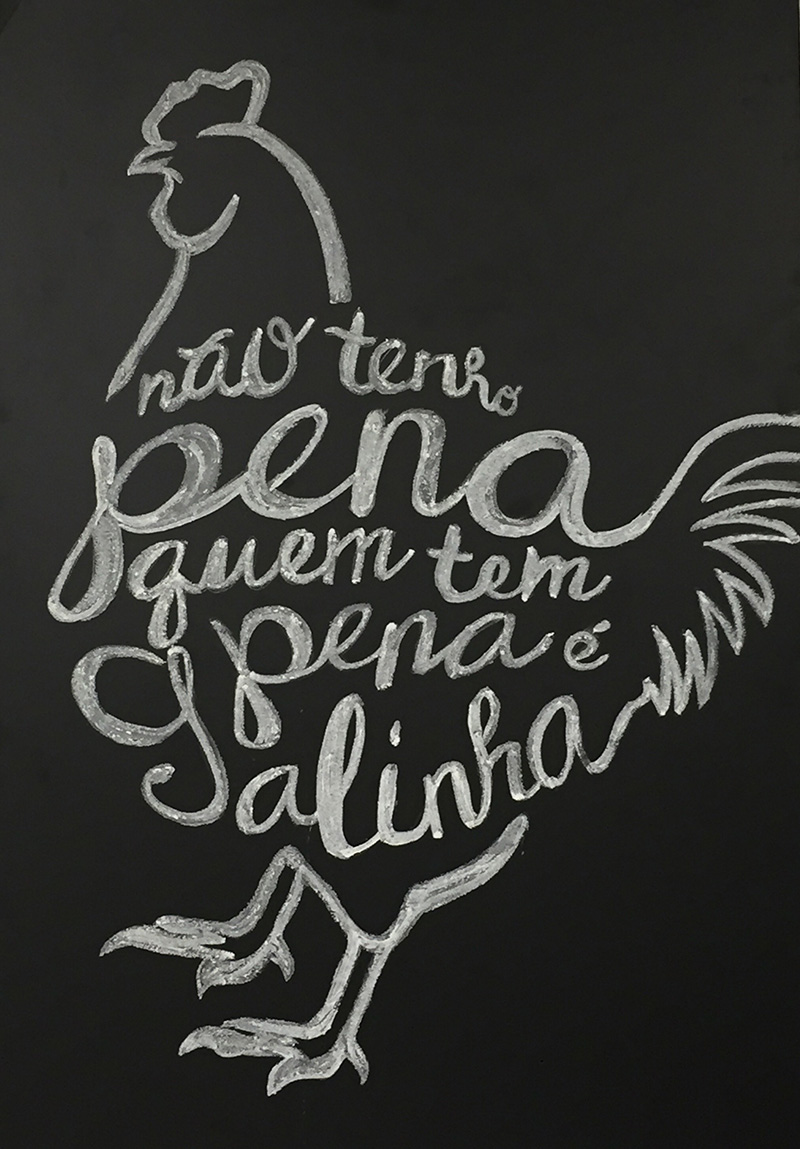 não tenho
pena
quem tem
pena é
galinha